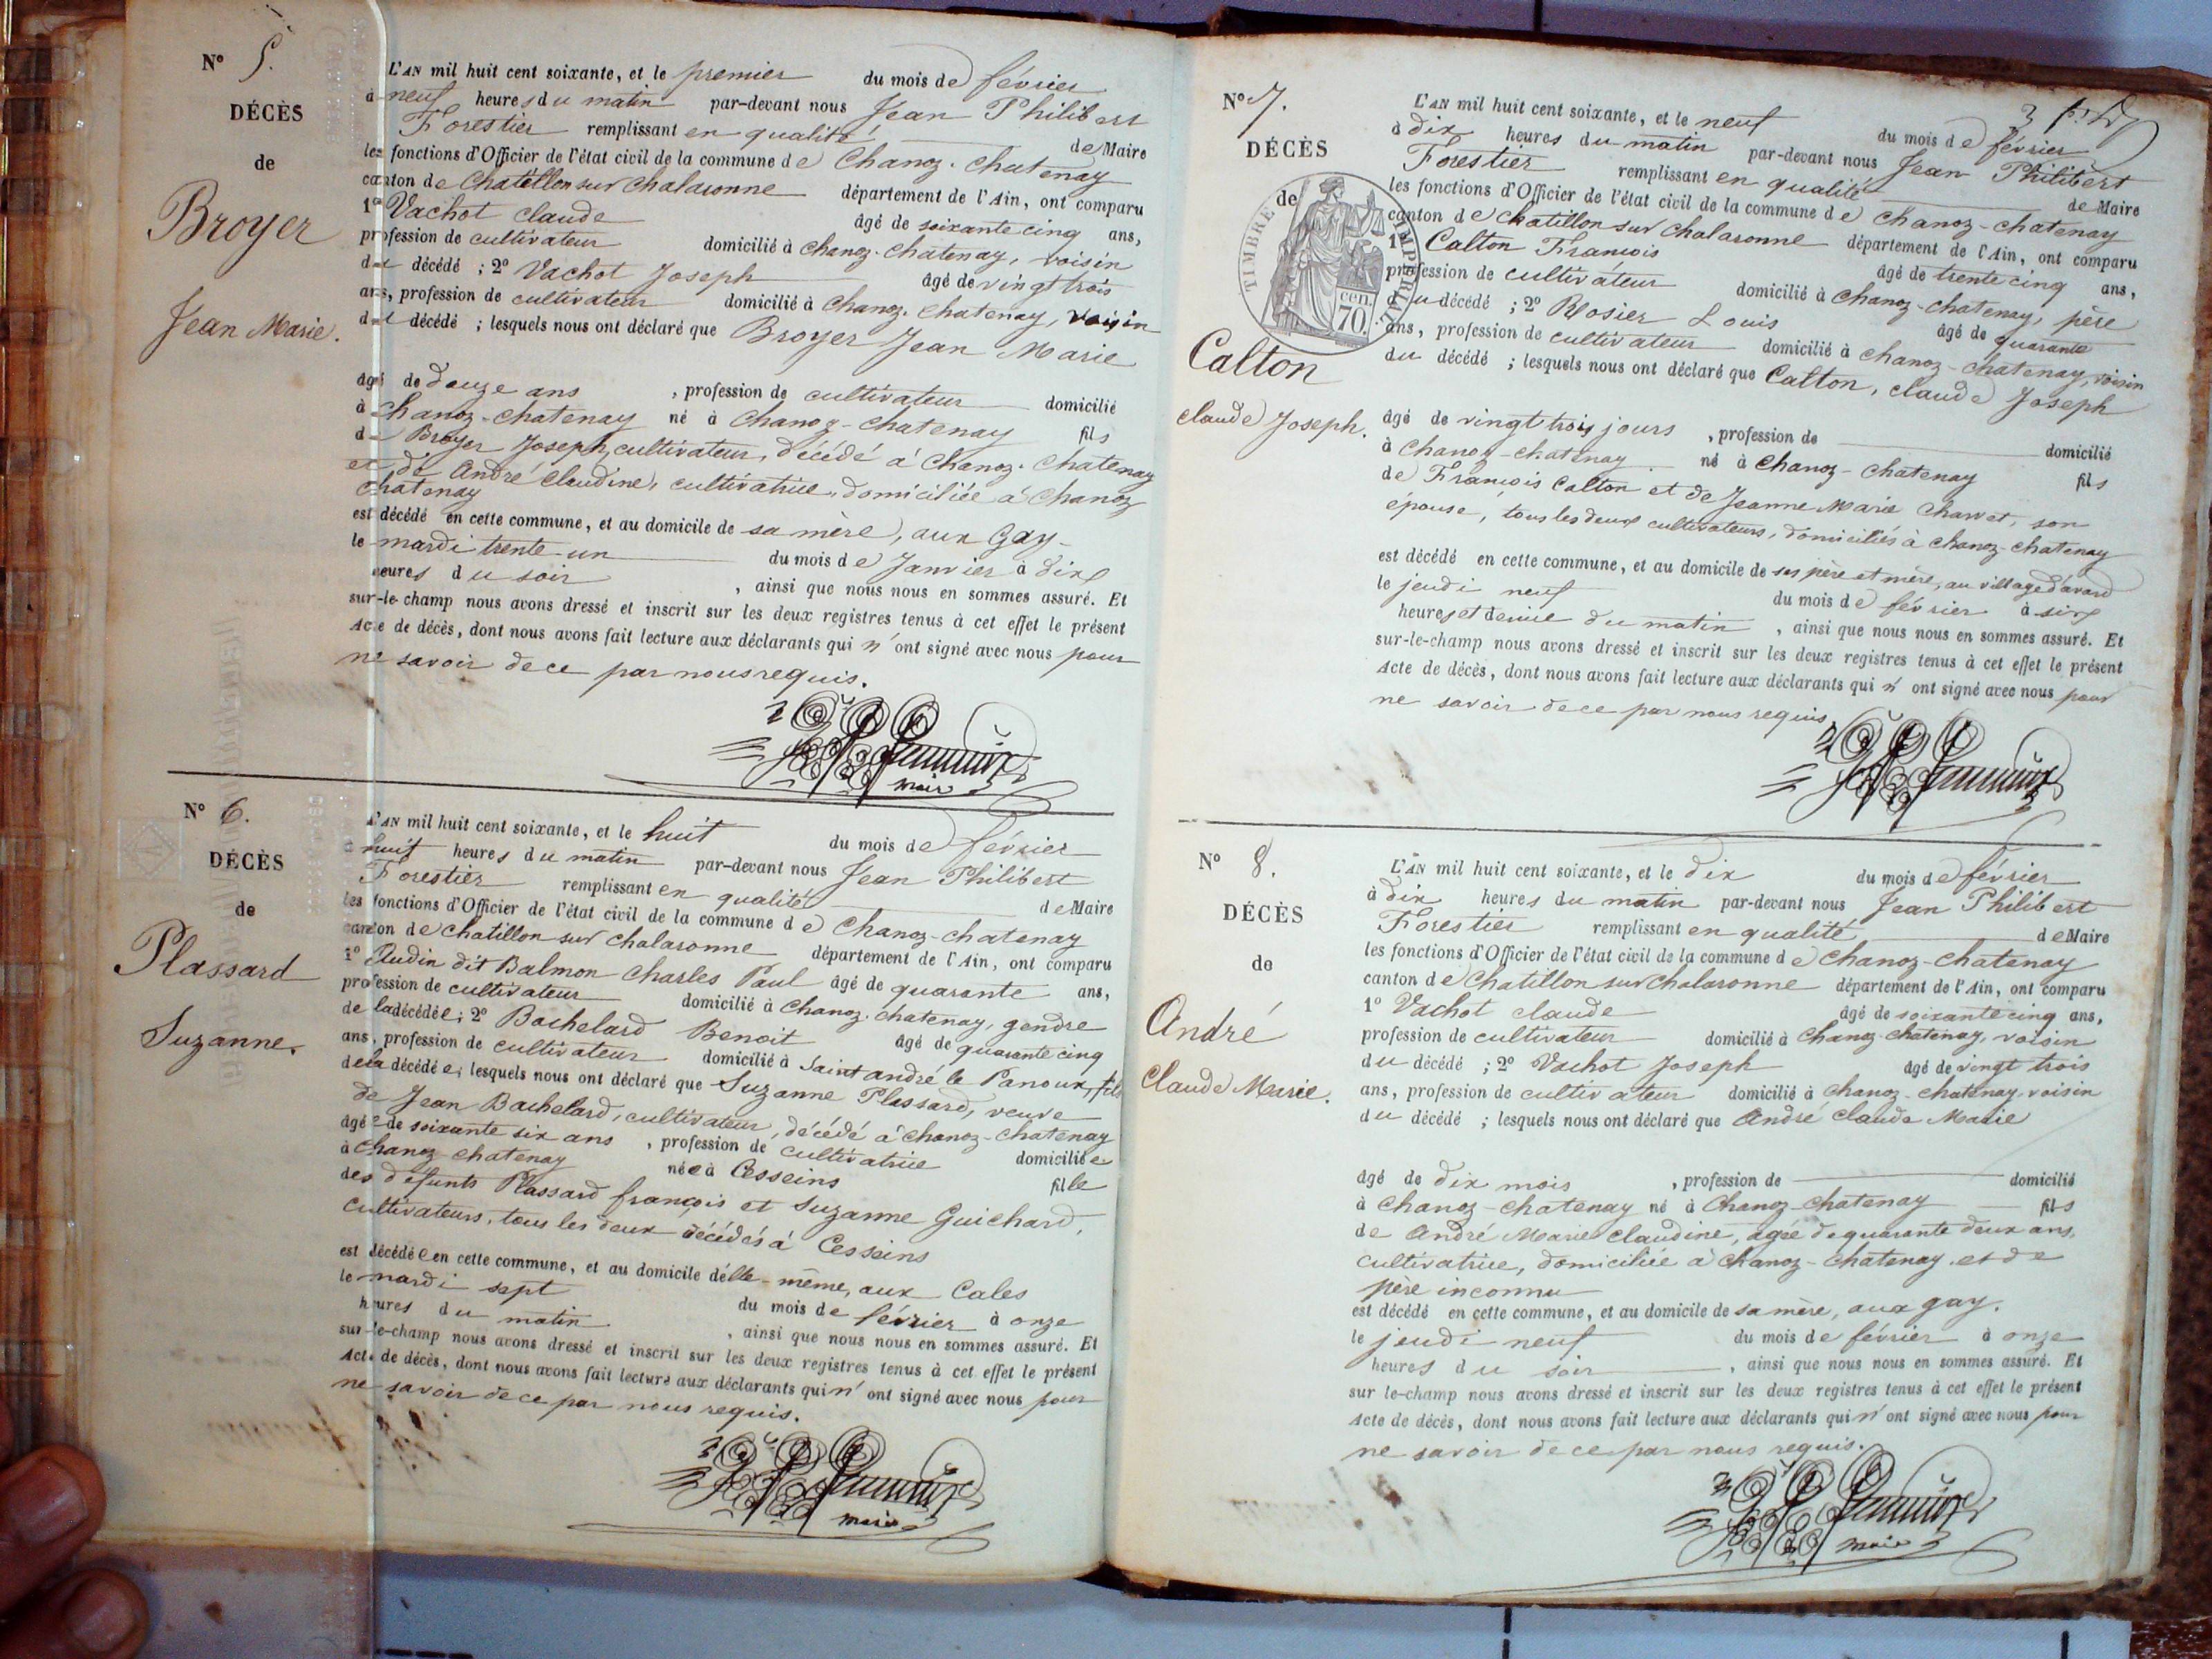 N° 5.
DÉCÈS
de
Broyer
Jean Marie.
L'AN mil huit cent soixante, et le premier du mois de février
à neuf heures du matin par-devant nous Jean Philibert
Forestier remplissant en qualité de Maire
les fonctions d'Officier de l'état civil de la commune de Chanoz-Chatenay
canton de Chatillon sur Chalaronne département de l'Ain, ont comparu
1° Vachot Claude âgé de soixante cinq ans,
profession de cultivateur domicilié à Chanoz-Chatenay, voisin
du décédé ; 2° Vachot Joseph âgé de vingt trois
ans, profession de cultivateur domicilié à Chanoz-Chatenay, voisin
du décédé ; lesquels nous ont déclaré que Broyer Jean Marie
âgé de douze ans , profession de cultivateur domicilié
à Chanoz-Chatenay né à Chanoz-Chatenay fils
de Broyer Joseph, cultivateur, décédé à Chanoz-Chatenay
et de André Claudine, cultivatrice, domiciliée à Chanoz
Chatenay
est décédé en cette commune, et au domicile de sa mère, aux Gay
le mardi trente-un du mois de Janvier à dix
heures du soir , ainsi que nous nous en sommes assuré. Et
sur-le-champ nous avons dressé et inscrit sur les deux registres tenus à cet effet le présent
Acte de décès, dont nous avons fait lecture aux déclarants qui n'ont signé avec nous pour
ne savoir de ce par nous requis.
maire
N° 6.
DÉCÈS
de
Plassard
Suzanne.
L'AN mil huit cent soixante, et le huit du mois de février
à huit heures du matin par-devant nous Jean Philibert
Forestier remplissant en qualité de Maire
les fonctions d'Officier de l'état civil de la commune de Chanoz-Chatenay
canton de Chatillon sur Chalaronne département de l'Ain, ont comparu
1° Audin dit Balmon Charles Paul âgé de quarante ans,
profession de cultivateur domicilié à Chanoz-Chatenay, gendre
de la décédée ; 2° Bachelard Benoit âgé de quarante cinq
ans, profession de cultivateur domicilié à Saint andré le Panoux, fils
de la décédée ; lesquels nous ont déclaré que Suzanne Plassard, veuve
de Jean Bachelard, cultivateur, décédé à Chanoz-Chatenay
âgée de soixante six ans , profession de cultivatrice domiciliée
à Chanoz Chatenay née à Cesseins fille
des défunts Plassard françois et Suzanne Guichard,
cultivateurs, tous les deux décédés à Cesseins
est décédée en cette commune, et au domicile d'elle-même, aux Cales
le mardi sept du mois de février à onze
heures du matin , ainsi que nous nous en sommes assuré. Et
sur-le-champ nous avons dressé et inscrit sur les deux registres tenus à cet effet le présent
Acte de décès, dont nous avons fait lecture aux déclarants qui n'ont signé avec nous pour
ne savoir de ce par nous requis.
maire
N° 7.
DÉCÈS
de
TIMBRE IMPERIAL
cen.
70.
Calton
Claude Joseph.
L'AN mil huit cent soixante, et le neuf du mois de février
à dix heures du matin par-devant nous Jean Philibert
Forestier remplissant en qualité de Maire
les fonctions d'Officier de l'état civil de la commune de Chanoz-Chatenay
canton de Chatillon sur Chalaronne département de l'Ain, ont comparu
1° Calton François âgé de trente cinq ans,
profession de cultivateur domicilié à Chanoz-Chatenay, père
du décédé ; 2° Blosier Louis âgé de quarante
ans, profession de cultivateur domicilié à Chanoz-Chatenay, voisin
du décédé ; lesquels nous ont déclaré que Calton, Claude Joseph
âgé de vingt trois jours , profession de domicilié
à Chanoz-Chatenay né à Chanoz-Chatenay fils
de François Calton et de Jeanne Marie Charvet, son
épouse, tous les deux cultivateurs, domiciliés à Chanoz-Chatenay
est décédé en cette commune, et au domicile de ses père et mère, au village d'avard
le jeudi neuf du mois de février à six
heures et demie du matin , ainsi que nous nous en sommes assuré. Et
sur-le-champ nous avons dressé et inscrit sur les deux registres tenus à cet effet le présent
Acte de décès, dont nous avons fait lecture aux déclarants qui n'ont signé avec nous pour
ne savoir de ce par nous requis.
N° 8.
DÉCÈS
de
André
Claude Marie.
L'AN mil huit cent soixante, et le dix du mois de février
à dix heures du matin par-devant nous Jean Philibert
Forestier remplissant en qualité de Maire
les fonctions d'Officier de l'état civil de la commune de Chanoz-Chatenay
canton de Chatillon sur Chalaronne département de l'Ain, ont comparu
1° Vachot Claude âgé de soixante cinq ans,
profession de cultivateur domicilié à Chanoz-Chatenay, voisin
du décédé ; 2° Vachot Joseph âgé de vingt trois
ans, profession de cultivateur domicilié à Chanoz-Chatenay, voisin
du décédé ; lesquels nous ont déclaré que André Claude Marie
âgé de dix mois , profession de domicilié
à Chanoz-Chatenay né à Chanoz Chatenay fils
de André Marie Claudine, agée de quarante deux ans,
cultivatrice, domiciliée à Chanoz-Chatenay. et de
père inconnu
est décédé en cette commune, et au domicile de sa mère, aux gay.
le jeudi neuf du mois de février à onze
heures du soir , ainsi que nous nous en sommes assuré. Et
sur le-champ nous avons dressé et inscrit sur les deux registres tenus à cet effet le présent
Acte de décès, dont nous avons fait lecture aux déclarants qui n'ont signé avec nous pour
ne savoir de ce par nous requis.
maire